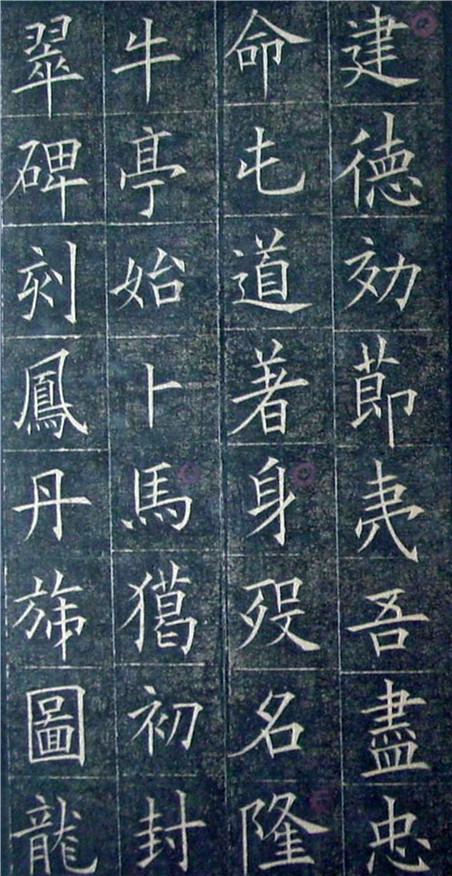 建德効莭夷吾盡忠
命屯道著身歿名隆
牛亭始卜馬獦初封
翠碑刻鳳丹斾圖龍